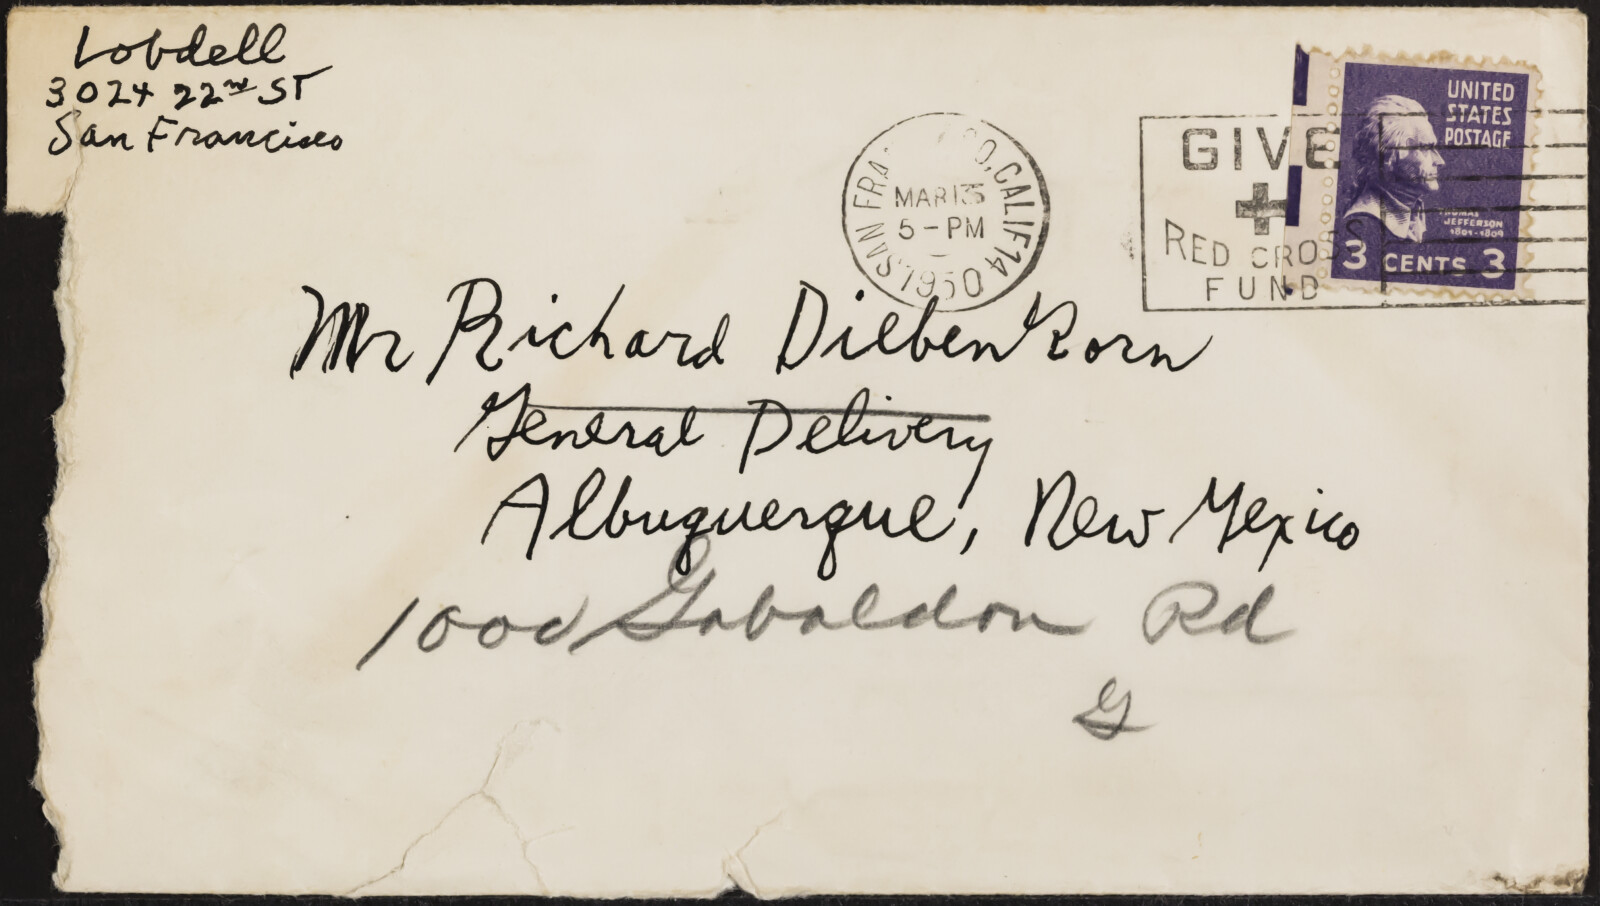 Lobdell
3024 22nd ST
San Francisco
SAN FRANCISCO, CALIF 14
MAR 13
5 - PM
1950
GIVE
RED CROSS
FUND
UNITED
STATES
POSTAGE
THOMAS
JEFFERSON
1801-1809
3 CENTS 3
Mr Richard Diebenkorn
General Delivery
Albuquerque, New Mexico
1000 Gabaldon Rd
G